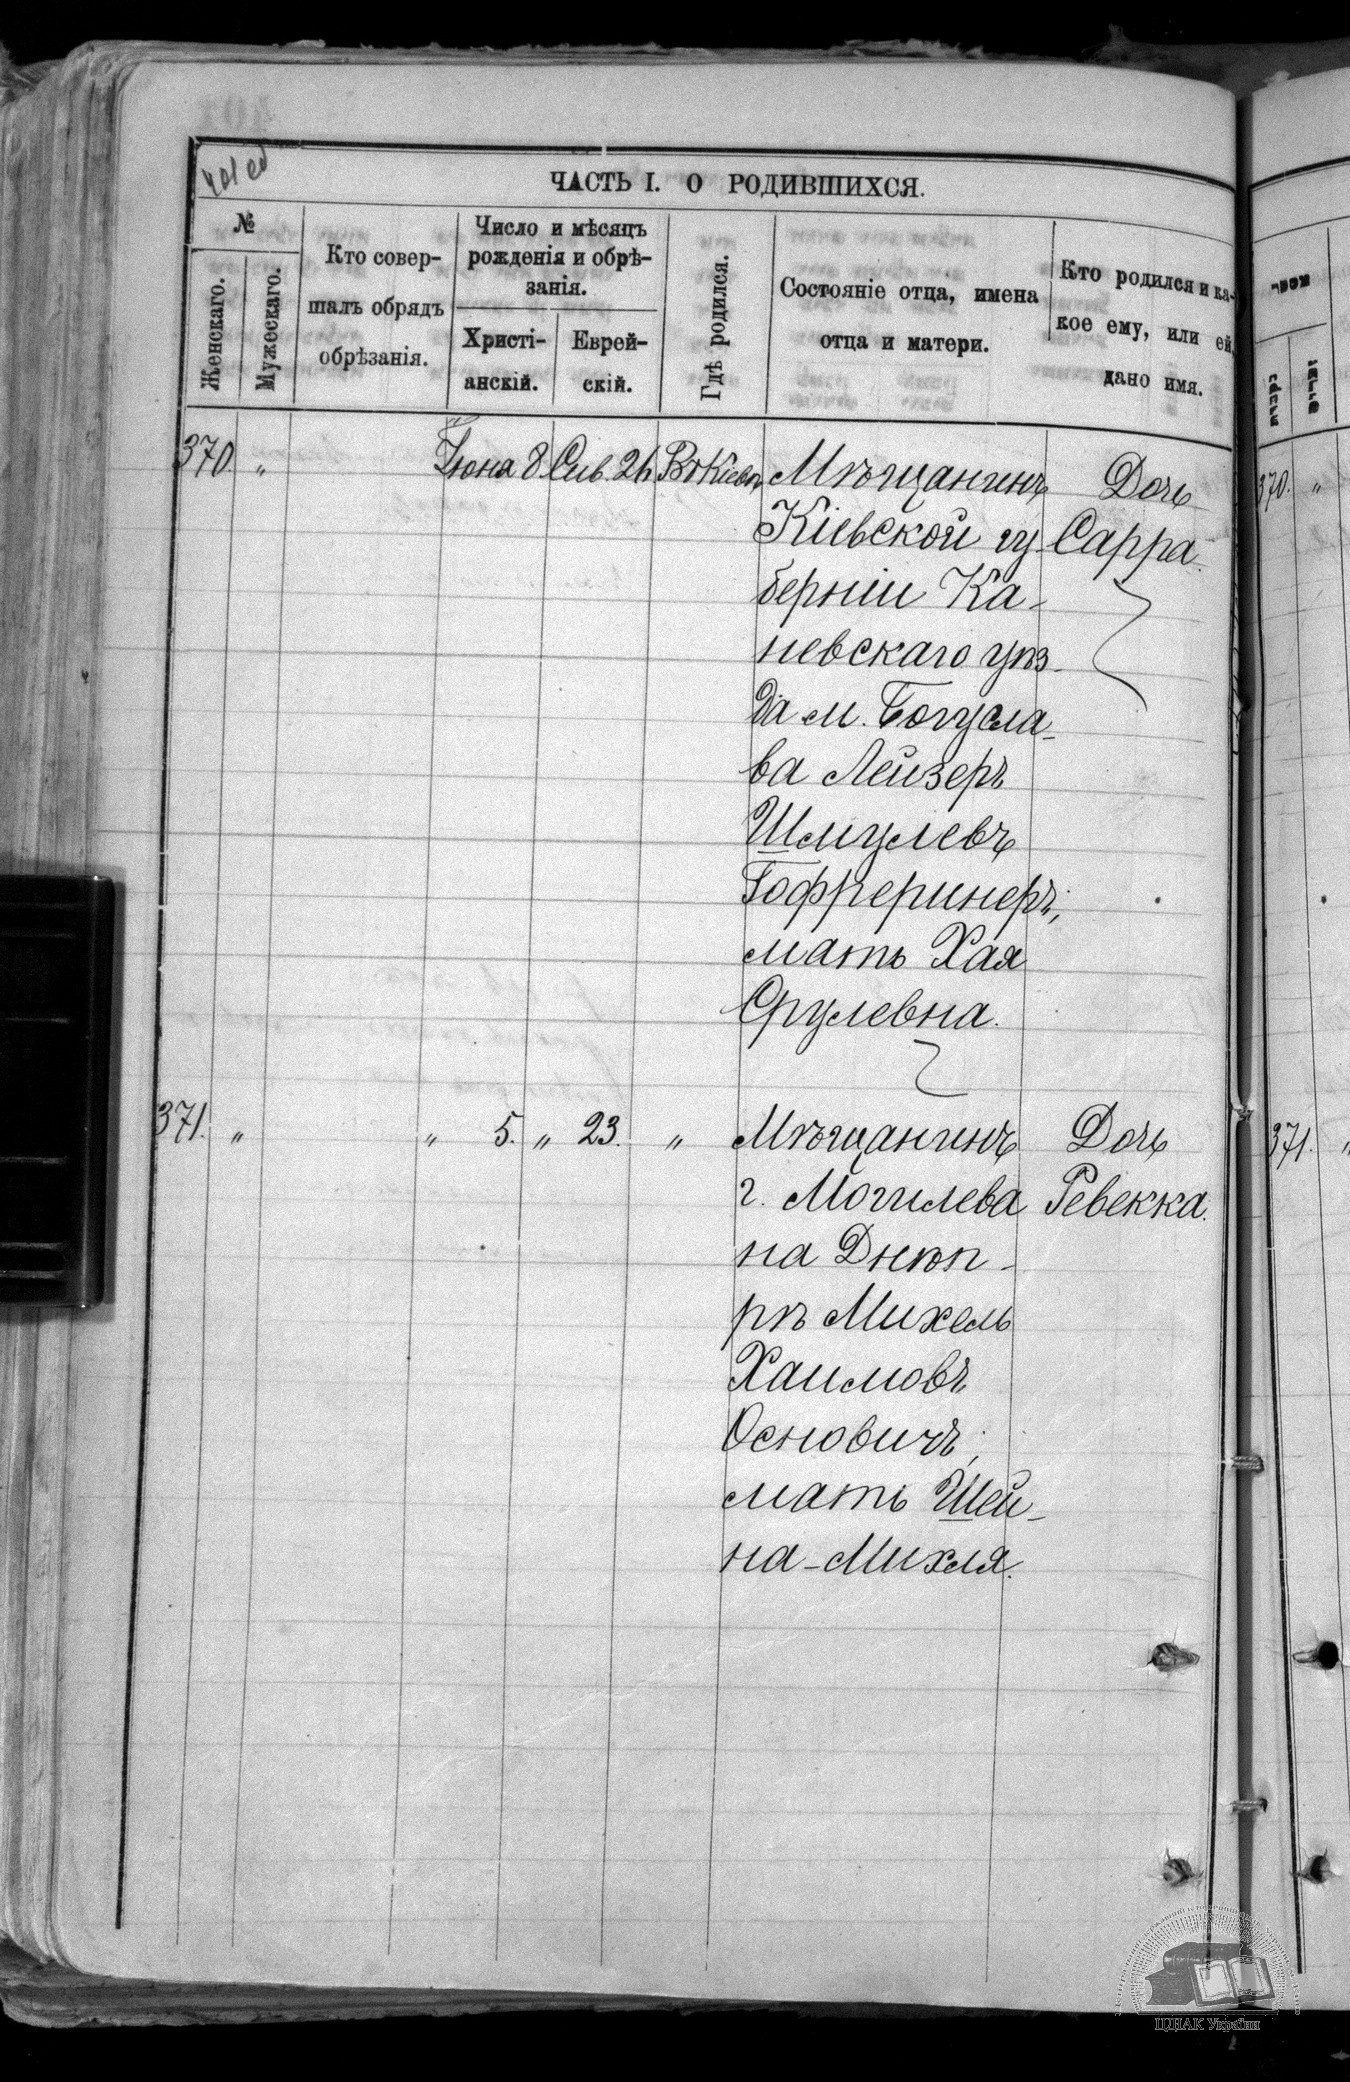 401 об
ЧАСТЬ I. О РОДИВШИХСЯ.
№
Женскаго.
Мужескаго.
Кто совер-
шалъ обрядъ
обрѣзанія.
Число и мѣсяцъ
рожденія и обрѣ-
занія.
Христі-
анскій.
Еврей-
скій.
Гдѣ родился.
Состояніе отца, имена
отца и матери.
Кто родился и ка-
кое ему, или ей,
дано имя.
370. „ Іюна 8 Сив. 26 Въ Кіевѣ Мѣщанинъ Дочь
Кіевской гу- Сарра.
берніи Ка-
невскаго уѣз-
да м. Богусла-
ва Лейзеръ
Шмулевъ
Гофреринеръ;
мать Хая
Срулевна.
371. „ „ 5. „ 23. „ Мѣщанинъ Дочь
г. Могилева Ревекка.
на Днѣп-
рѣ Михель
Хаимовъ
Основичъ;
мать Шей-
на-Михля.
370. „
371. „
ЦДІАК України